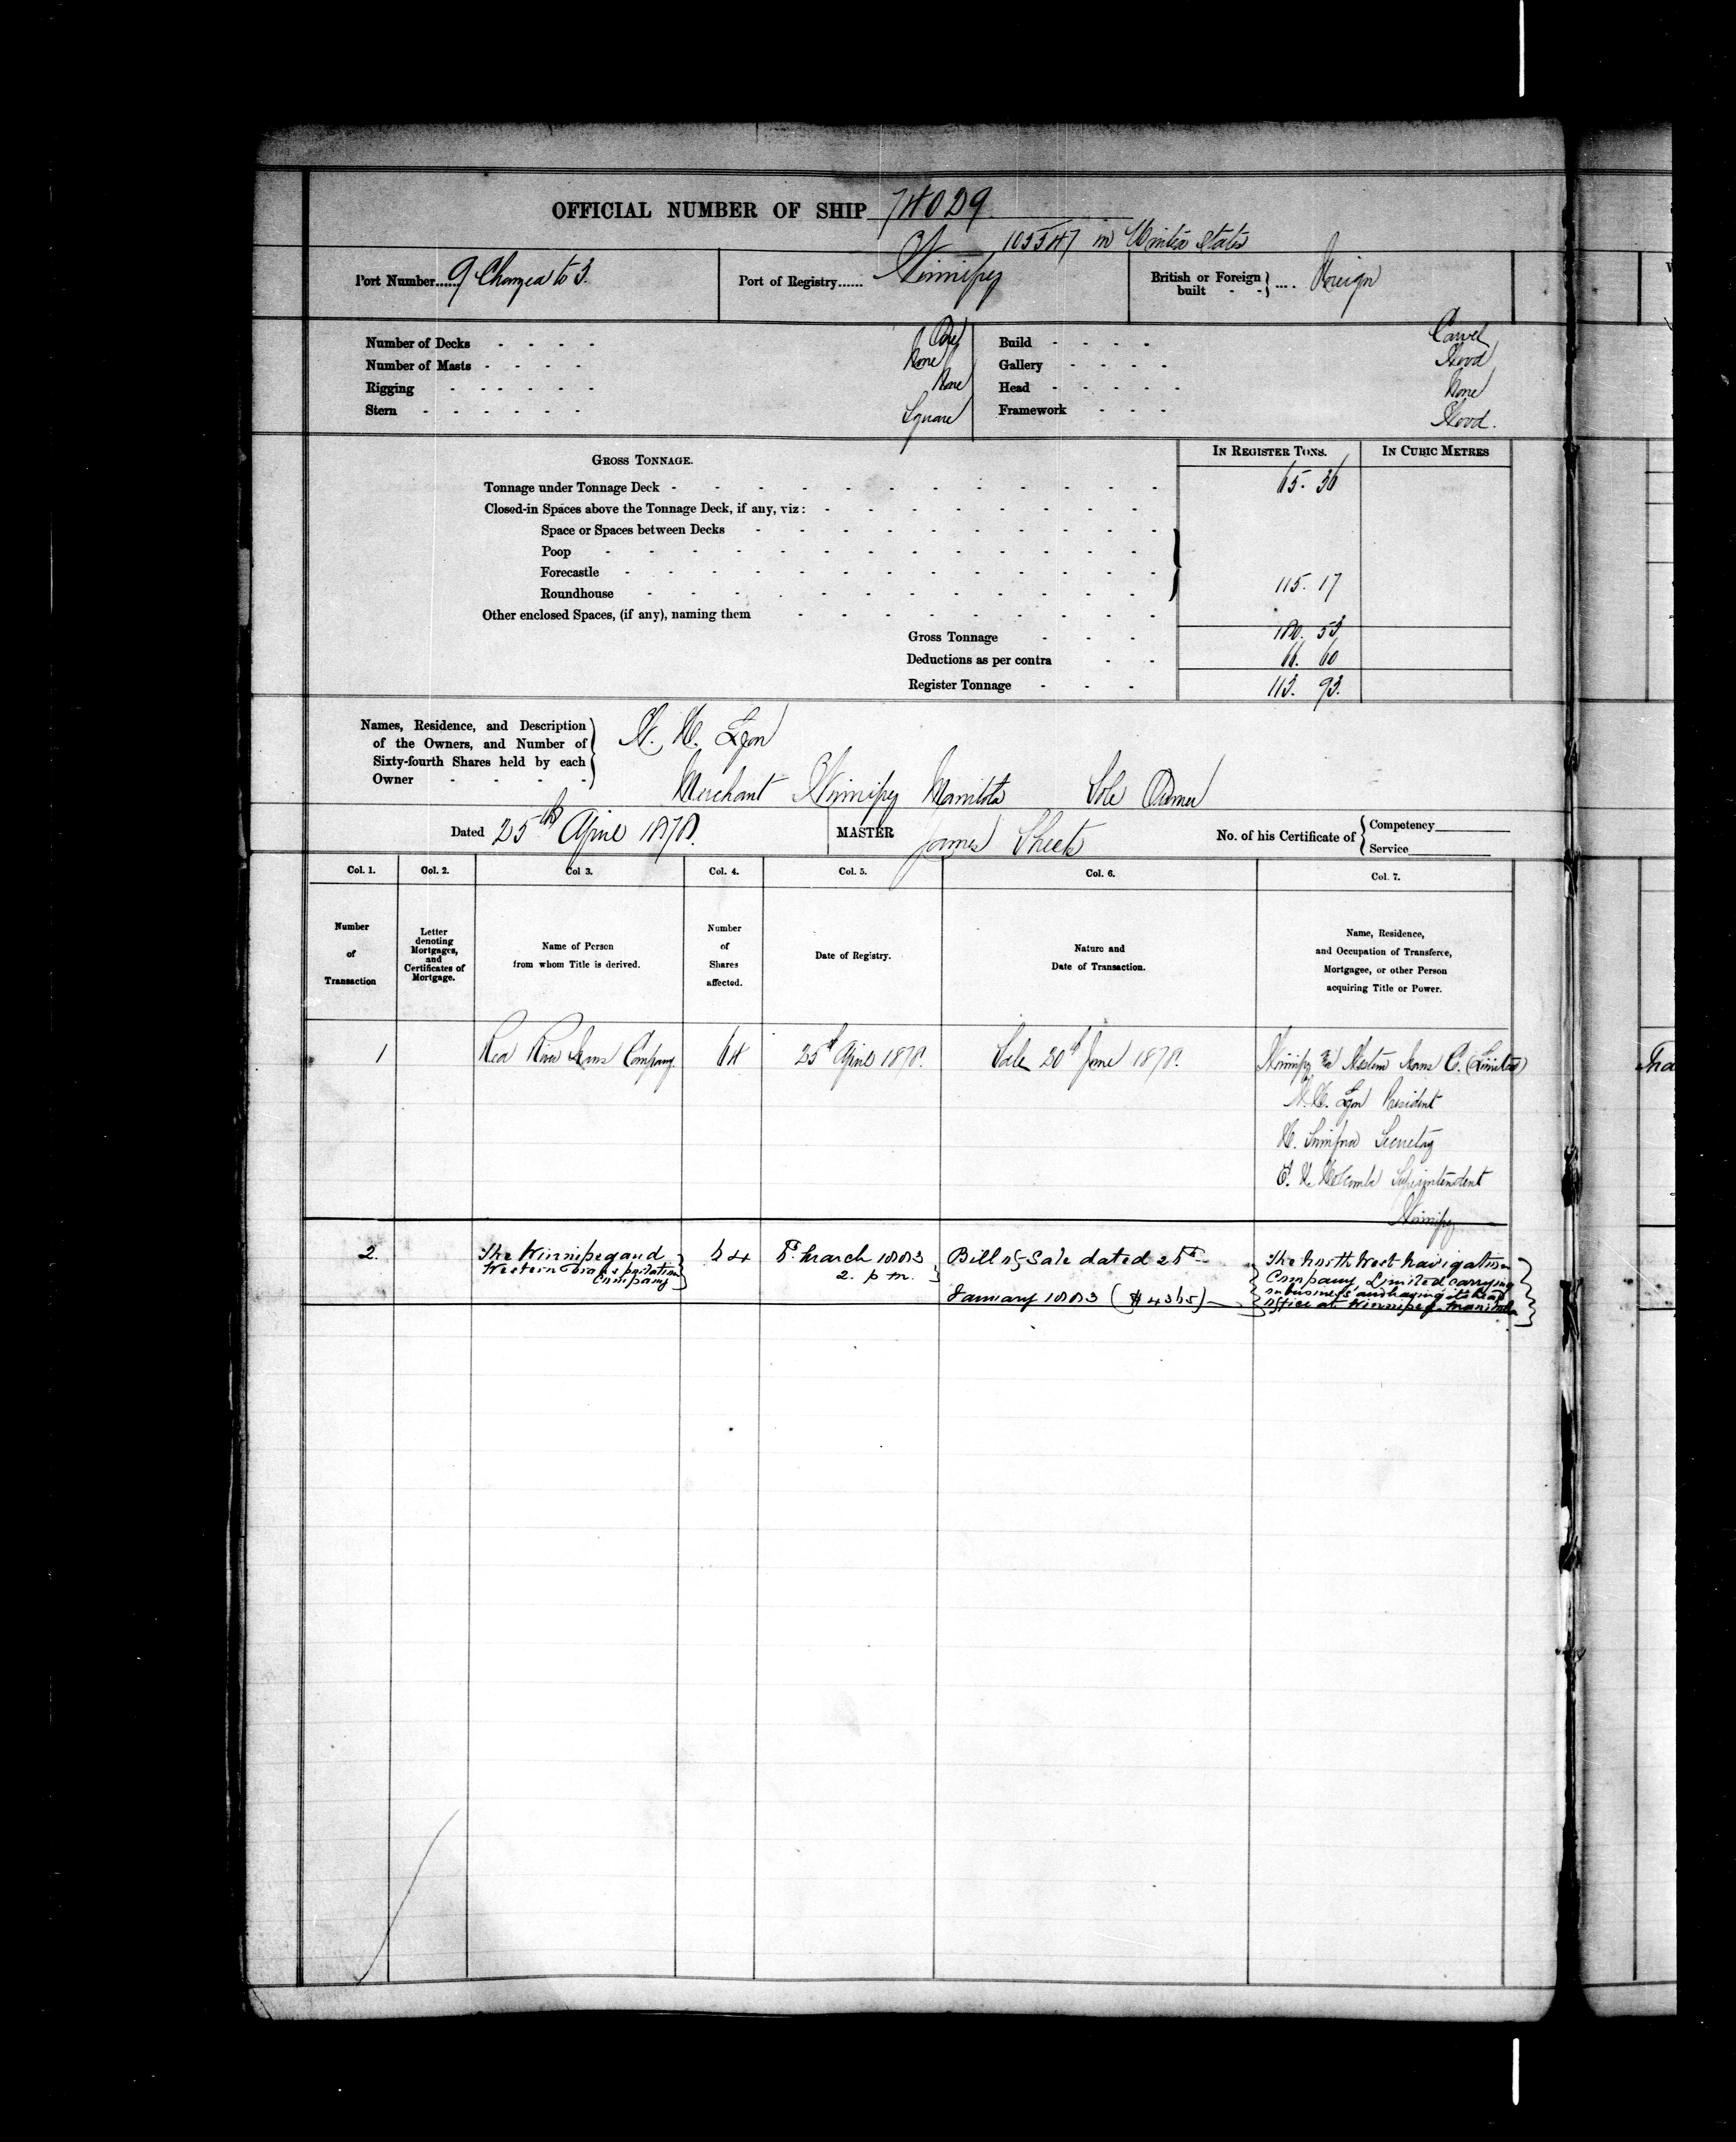 OFFICIAL NUMBER OF SHIP 74029
105547 in United States
Port Number...... 9 Changed to 3. Port of Registry...... Winnipeg British or Foreign built - - } .... Foreign
Number of Decks - - - - One Build - - - - Carvel
Number of Masts - - - - None Gallery - - - - Wood
Rigging - - - - - - None Head - - - - - None
Stern - - - - - - Square Framework - - - Wood.
GROSS TONNAGE. IN REGISTER TONS. IN CUBIC METRES
Tonnage under Tonnage Deck - 65. 36
Closed-in Spaces above the Tonnage Deck, if any, viz: -
Space or Spaces between Decks -
Poop -
Forecastle -
Roundhouse - 115. 17
Other enclosed Spaces, (if any), naming them -
Gross Tonnage - - - 180. 53
Deductions as per contra - - 66. 60
Register Tonnage - - - 113. 93.
Names, Residence, and Description
of the Owners, and Number of
Sixty-fourth Shares held by each
Owner - - - -
W. H. Lyon
Merchant Winnipeg Manitoba Sole Owner
Dated 25th April 1878. MASTER James Sheets No. of his Certificate of { Competency
Service
Col. 1. Col. 2. Col 3. Col. 4. Col. 5. Col. 6. Col. 7.
Number of Transaction
Letter denoting Mortgages, and Certificates of Mortgage.
Name of Person from whom Title is derived.
Number of Shares affected.
Date of Registry.
Nature and Date of Transaction.
Name, Residence, and Occupation of Transferee, Mortgagee, or other Person acquiring Title or Power.
1 Red River Trans Company. 64 25th April 1878. Sale 20th June 1878. Winnipeg & Western Trans C. (Limited)
W. H. Lyon President
H. Secretary
Superintendent
Winnipeg
2. The Winnipeg and 64 March 1883 Bill of Sale dated 25th The North West Navigation
Western Transportation 2. p m. Company Limited carrying
Company January 1883 ($4365) on business and having its head
office at Winnipeg Manitoba